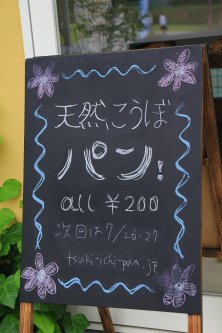 天然こうぼ
パン!
all ¥200
次回は7/26.27
tsuki-ichi-pan.jp